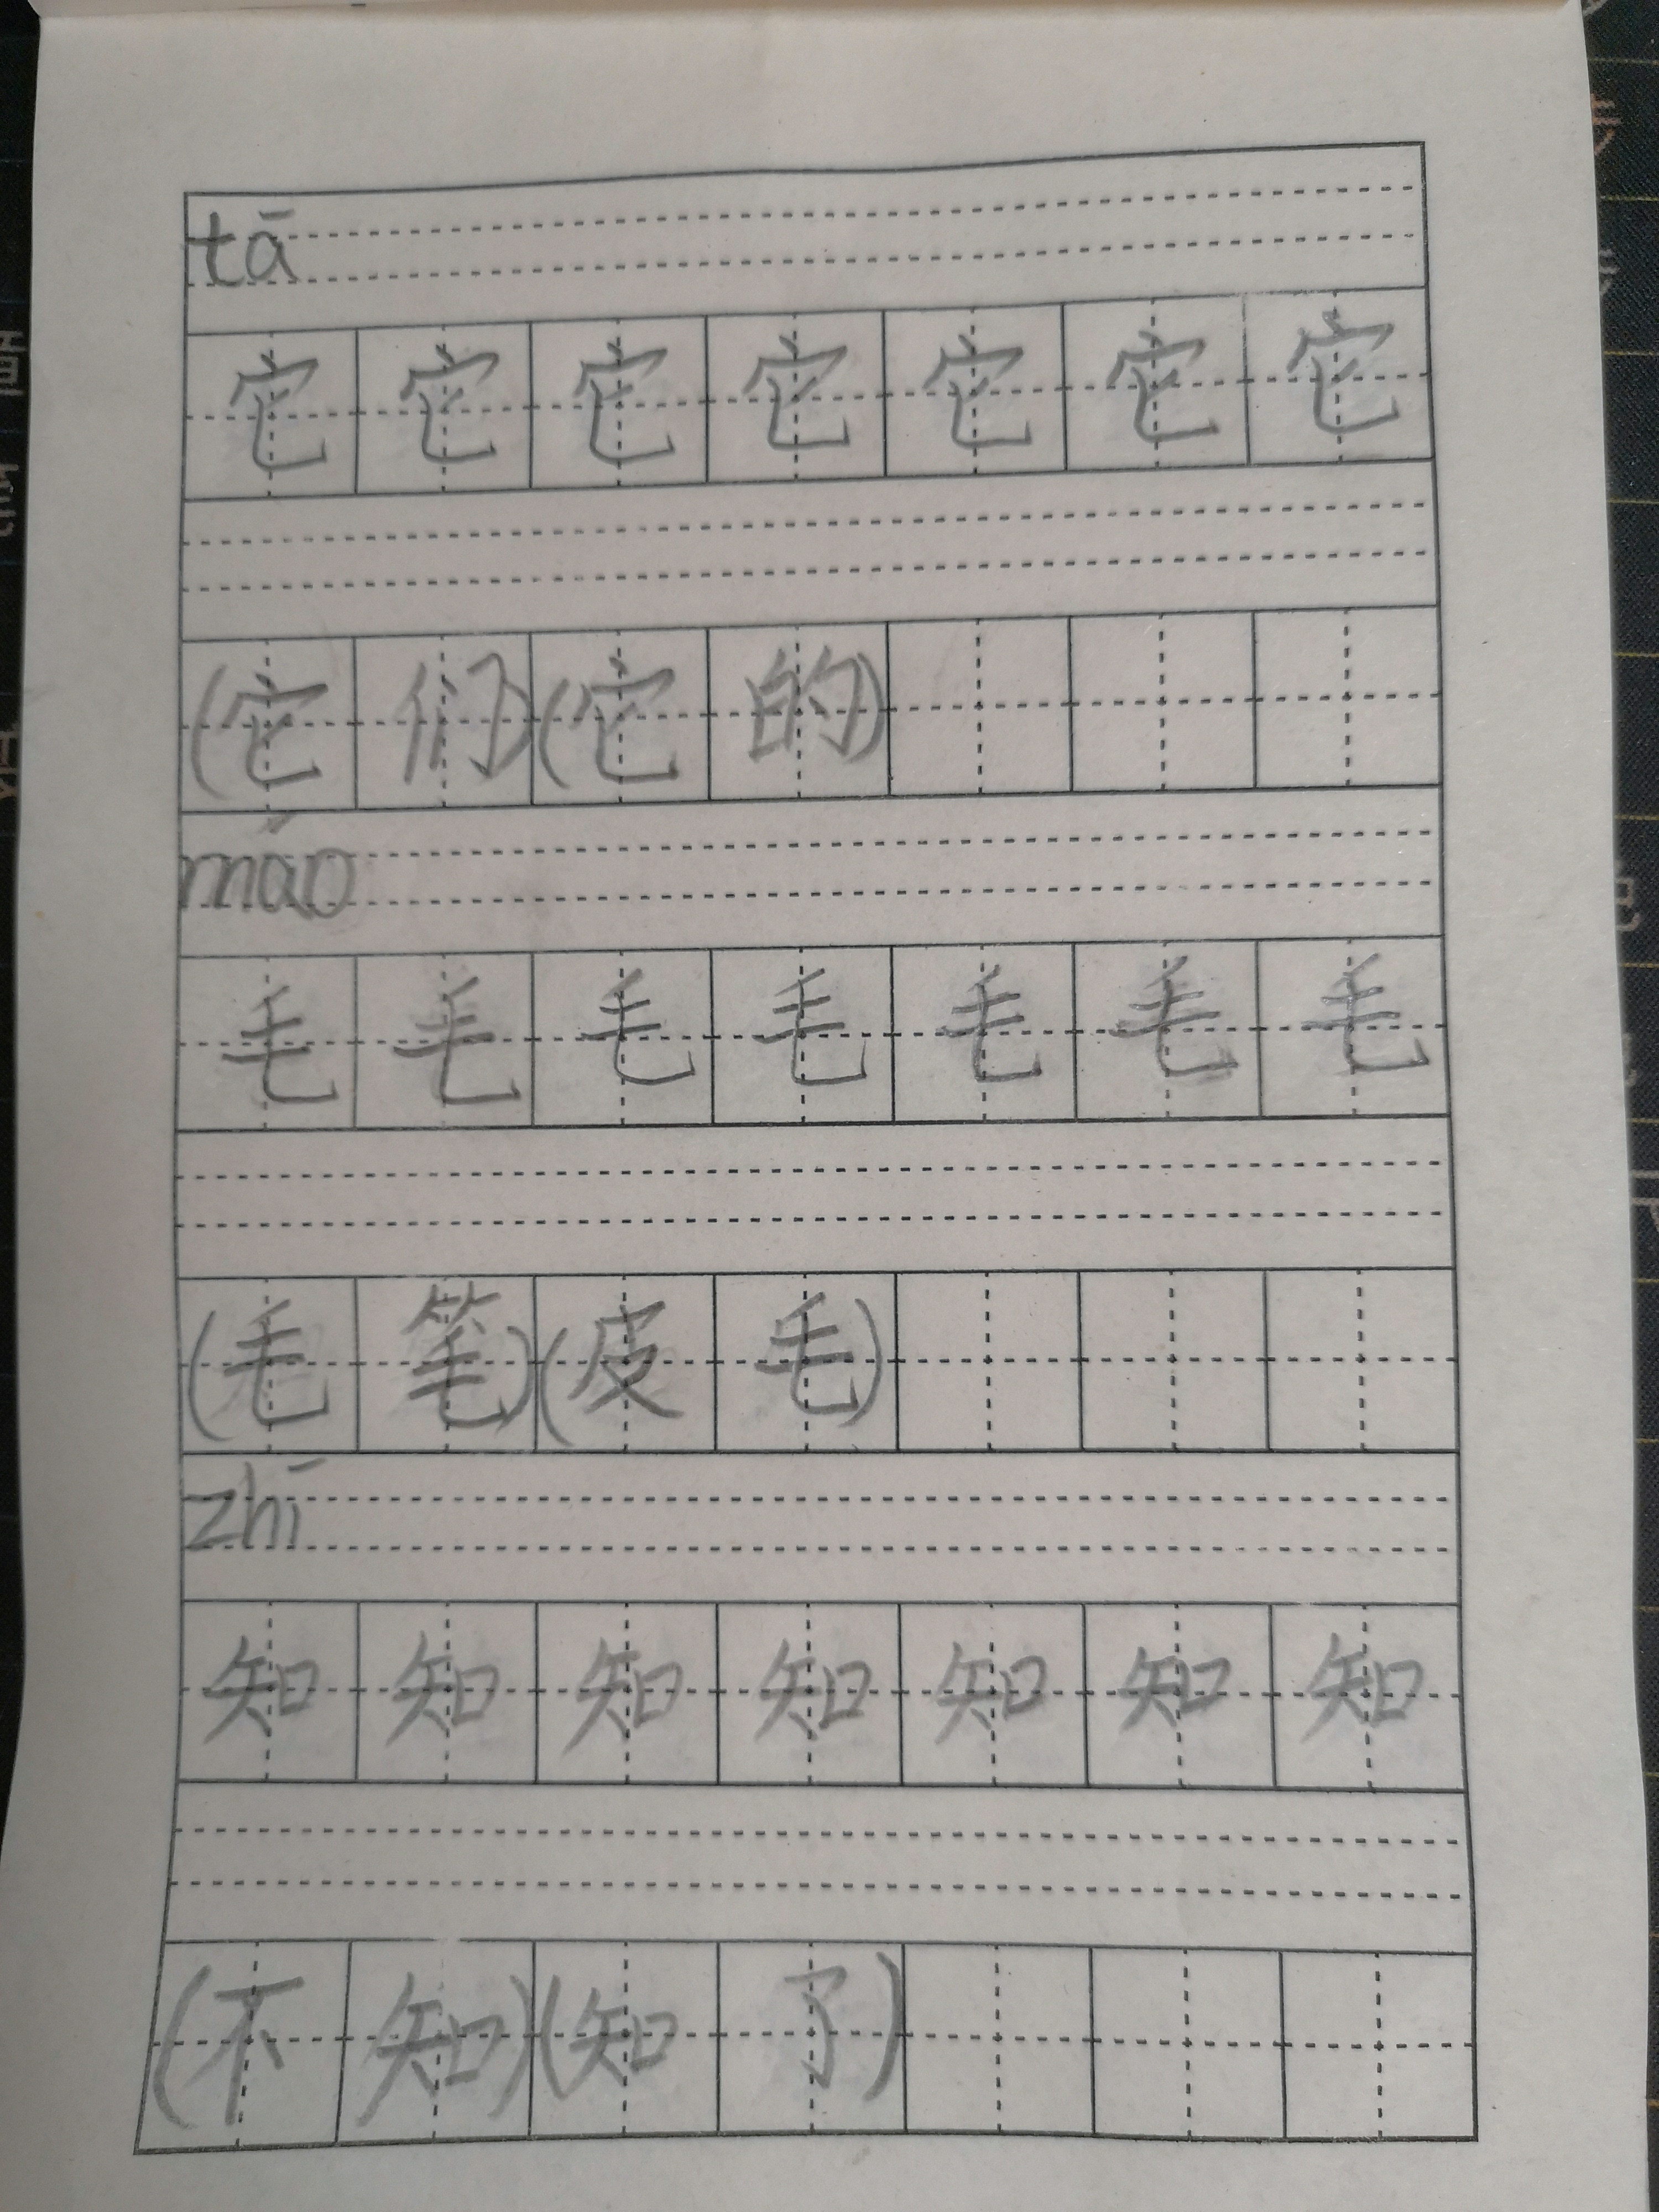 tā
它它它它它它它
(它们)(它的)
máo
毛毛毛毛毛毛毛
(毛笔)(皮毛)
zhī
知知知知知知知
(不知)(知了)